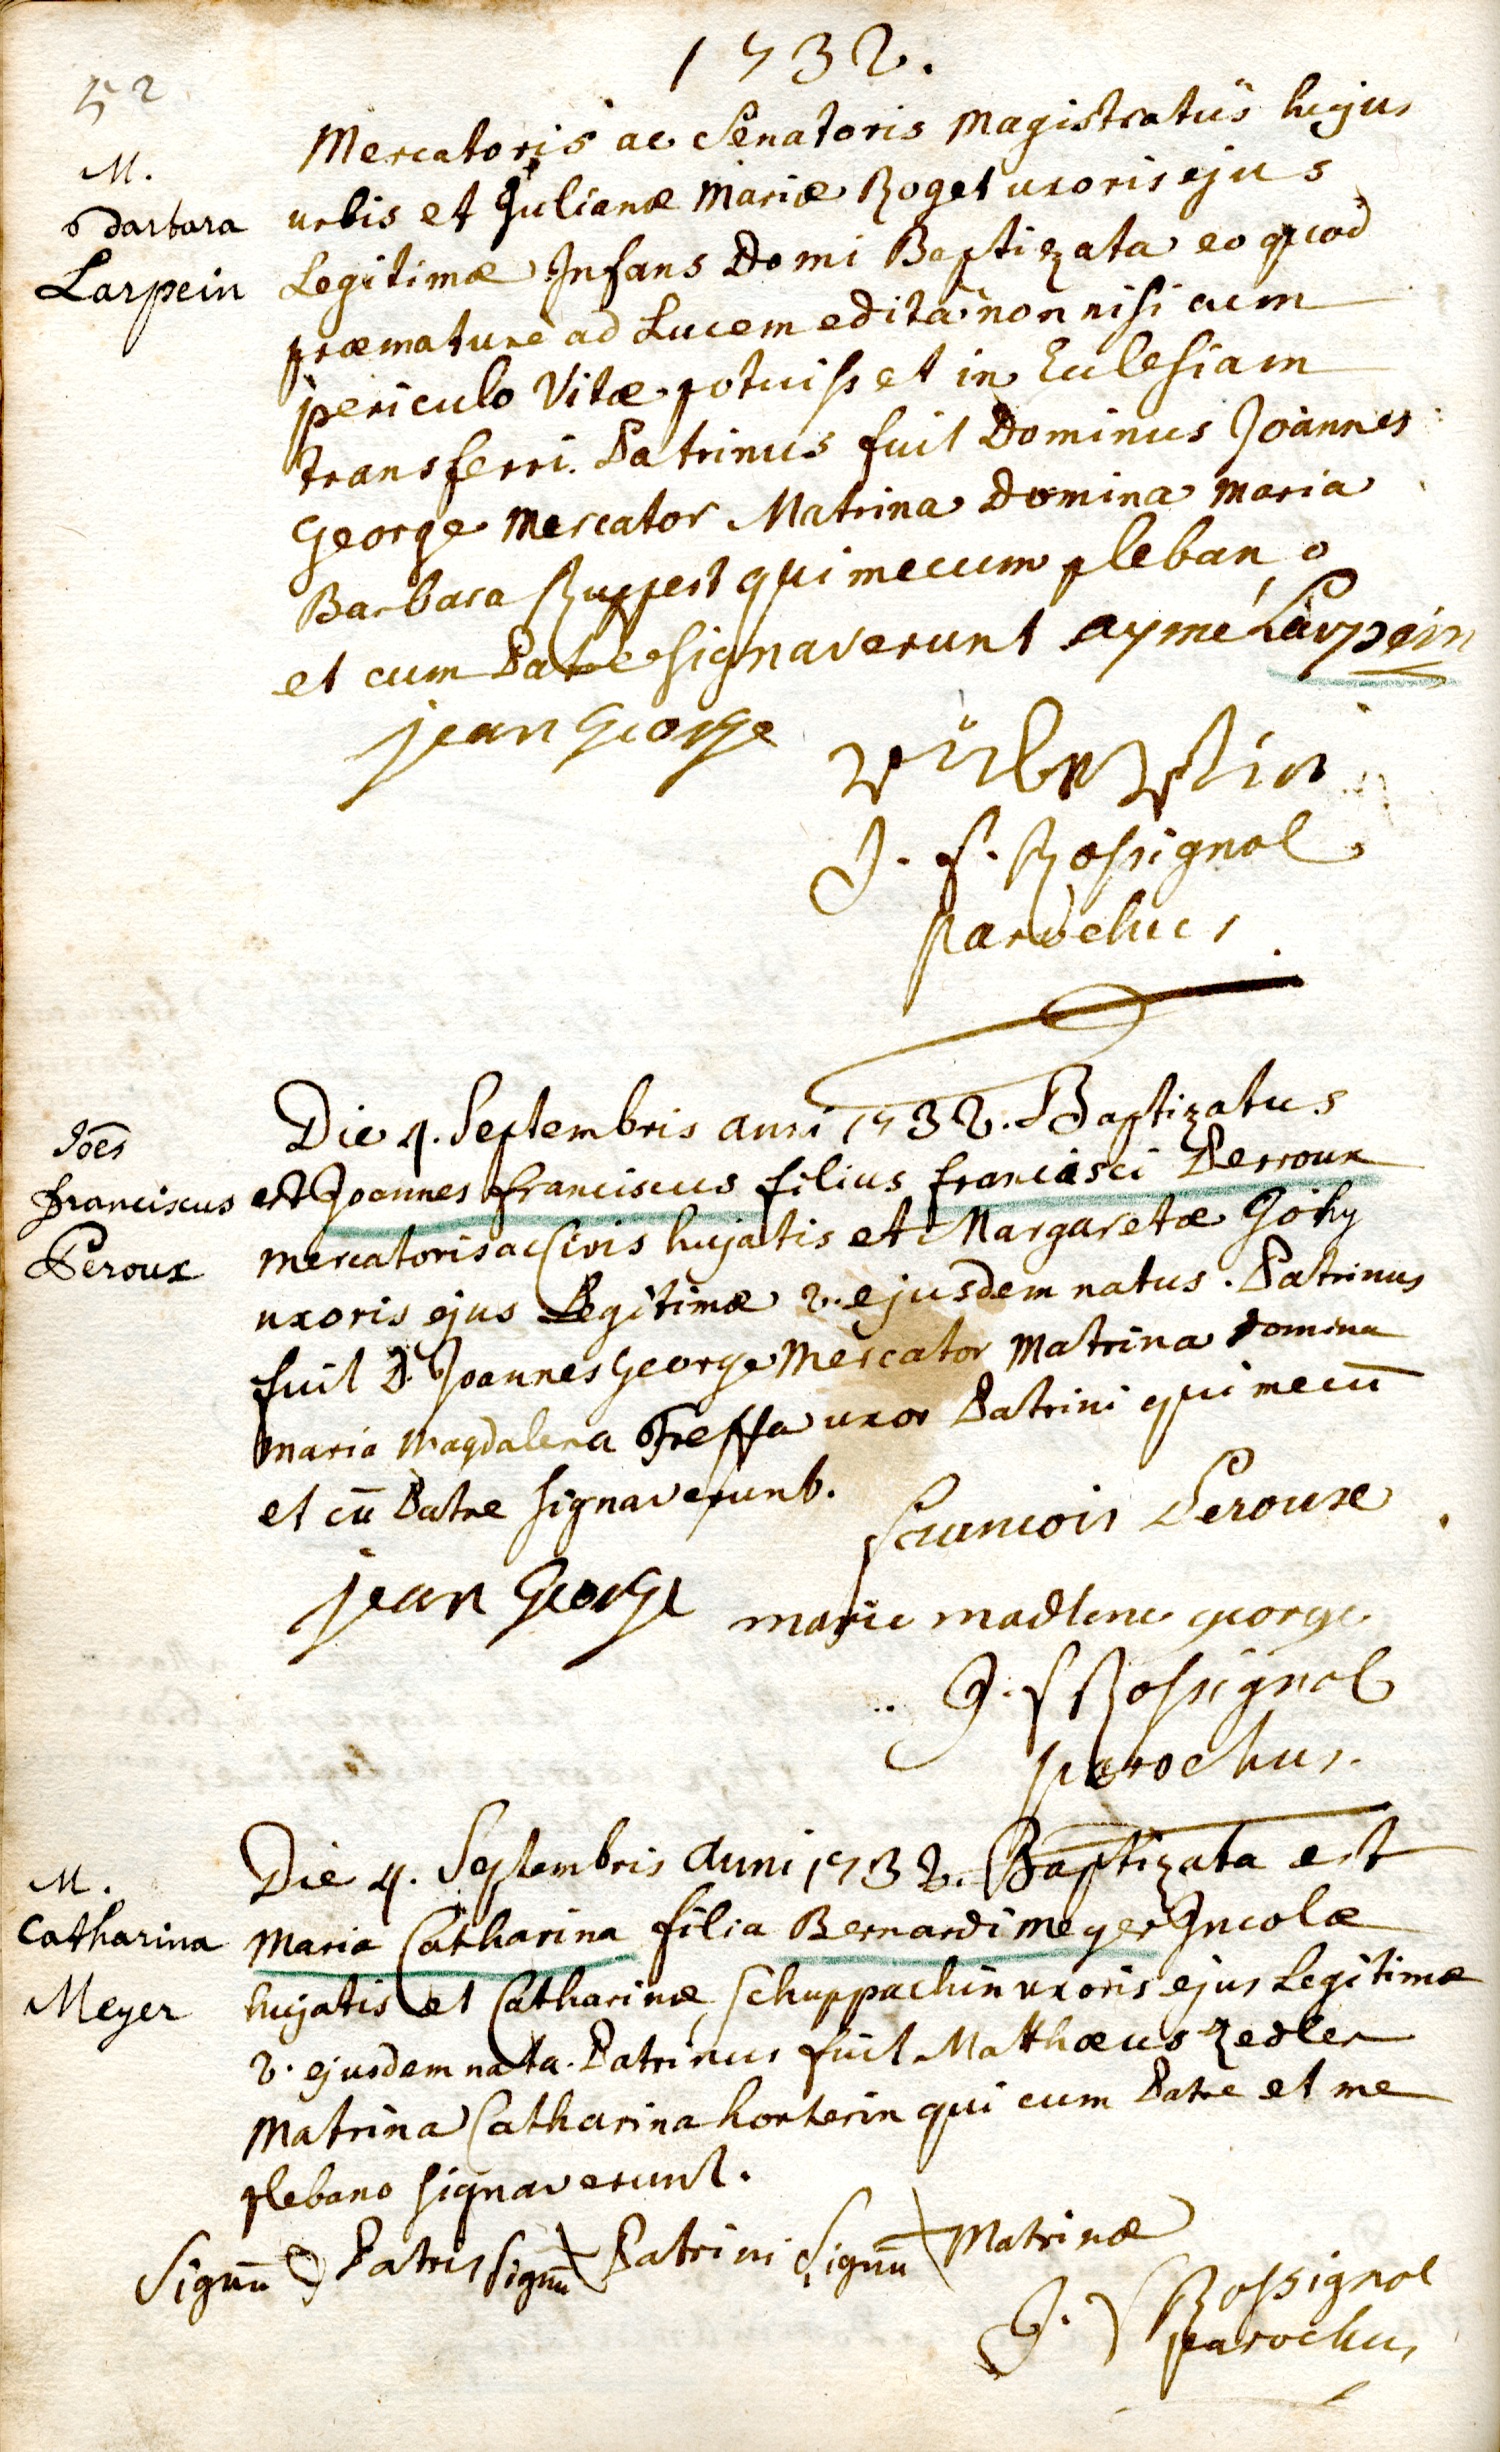 1732.
52
M.
Barbara
Larpein
Mercatoris ac Senatoris Magistratûs hujus
urbis et Julianæ Mariæ Roget uxoris ejus
Legitimæ Infans Domi Baptizata eo quod
præmature ad Lucem edita non nisi cum
periculo Vitæ potuisset in Eclesiam
transferri. Patrinus fuit Dominus Joannes
George Mercator Matrina Domina Maria
Barbara Ruppert qui mecum plebano
et cum Patre signaverunt aymé Larpein
jean George
J. f. Rossignol
parochus
Joēs
franciscus
Peroux
Die 4. Septembris anni 1732. Baptizatus
est Joannes franciscus filius francisci Perroux
mercatoris ac Civis hujatis et Margaretæ Johy
uxoris ejus Legitimæ 2. ejusdem natus. Patrinus
fuit D. Joannes George Mercator Matrina Domina
Maria Magdalena uxor Patrini qui mecū
et cū Patre signaverunt.
francois Peroux
jean George
marie madlene george
J. f Rossignol
parochus.
M.
Catharina
Meyer
Die 4. Septembris anni 1732. Baptizata est
Maria Catharina filia Bernardi Meyer Incolæ
hujatis et Catharinæ Schuppachin uxoris ejus Legitimæ
2. ejusdem nata. Patrinus fuit Matthæus Zedler
Matrina Catharina horterin qui cum Patre et me
plebano signaverunt.
Signū Patris Signū Patrini Signū Matrinæ
J. f Rossignol
parochus